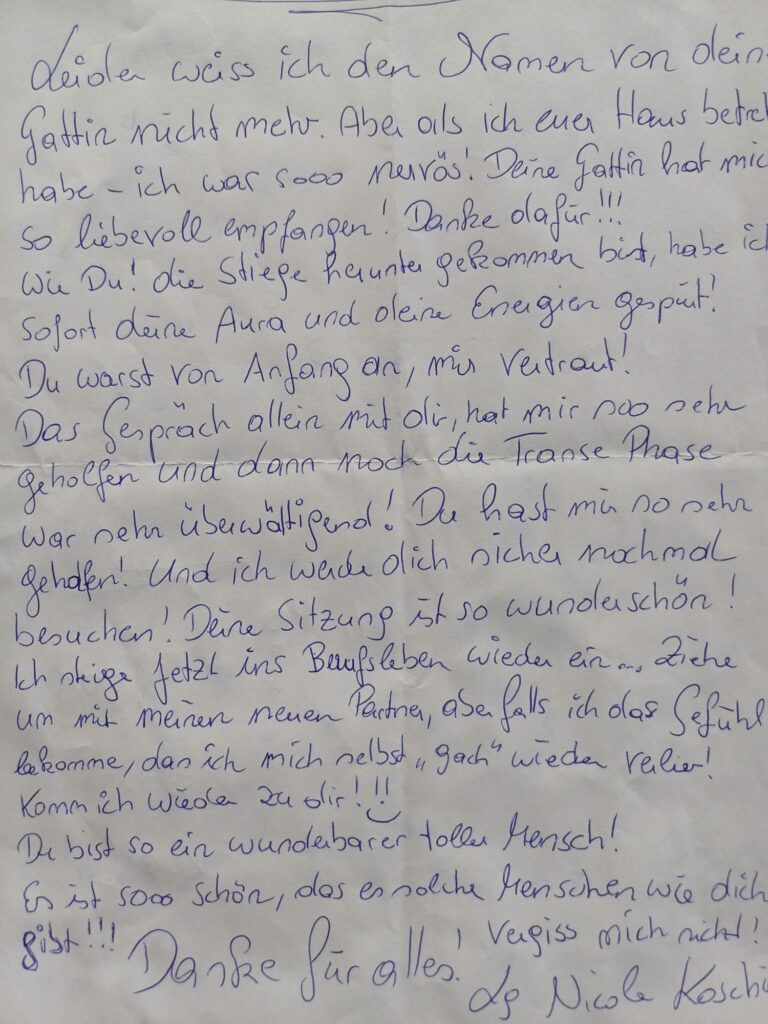 Leider weiss ich den Namen von dein
Gattin nicht mehr. Aber als ich euer Haus betre
habe – ich war sooo nervös! Deine Gattin hat mic
so liebevoll empfangen! Danke dafür!!!
Wie Du! die Stiege herunter gekommen bist, habe ich
sofort deine Aura und deine Energien gespürt!
Du warst von Anfang an, mir vertraut!
Das Gespräch allein mit dir, hat mir soo sehr
geholfen und dann noch die Transe Phase
war sehr überwältigend! Du hast mir so sehr
geholfen! Und ich werde dich sicher nochmal
besuchen! Deine Sitzung ist so wunderschön!
Ich steige jetzt ins Berufsleben wieder ein... Ziehe
um mit meinen neuen Partner, aber falls ich das Gefühl
bekomme, das ich mich selbst „gach" wieder verlier!
Komm ich wieder zu dir!!!
Du bist so ein wunderbarer toller Mensch!
Es ist sooo schön, das es solche Menschen wie dich
gibt!!! Vergiss mich nicht!
Danke für alles!
Lg Nicole Koschi